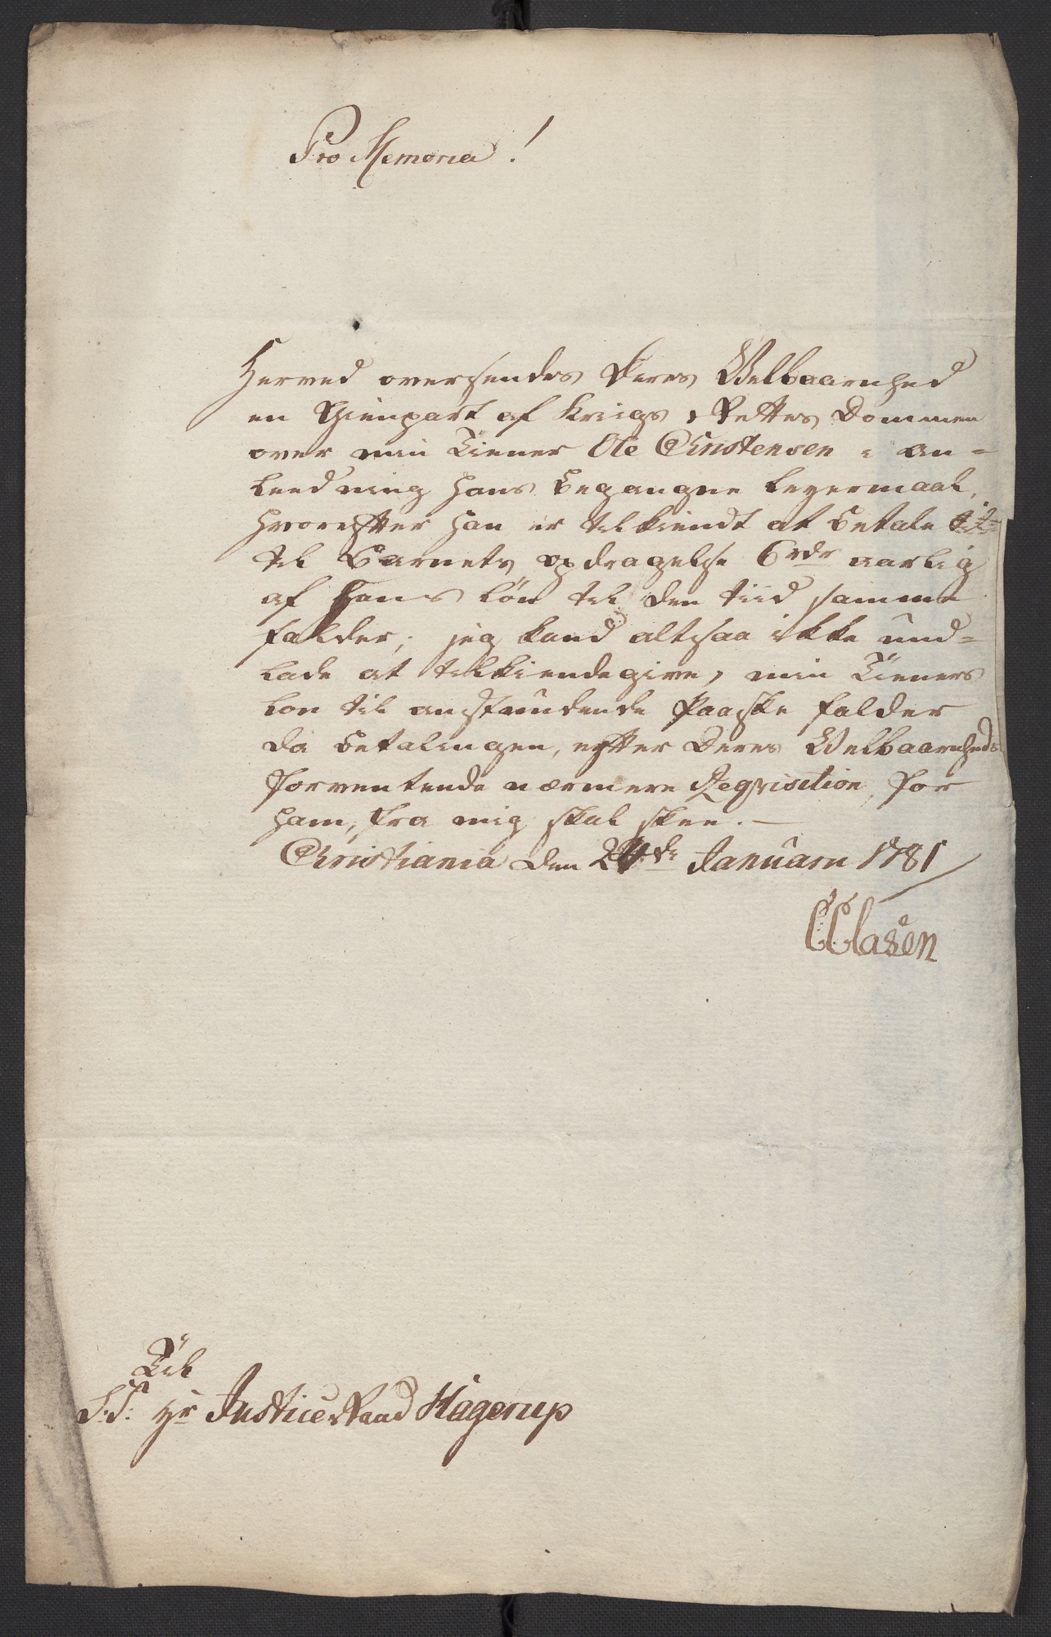 Pro Memoria!
Herved oversendes Deres Welbaarenhed
en Gienpart af Krigs Rettes Dommen
over min Tiener Ole Christensen i an-
leedning hans begangne leyermaal,
hvorefter han er tilkiendt at betale
til Barnets opdragelse 6 rdr aarlig
af hans lön til den tiid samme
falder; jeg kand altsaa ikke und-
lade at tilkiendegive, min Tieners
lön til anstundende Paaske falder
da betalingen, efter Deres Welbaarenheds
forventende nærmere Reqvisition, for
ham, fra mig skal skee.
Christiania den 24de Januarii 1781
CClasen
Til
S:T: Hr Justice Raad Hagerup